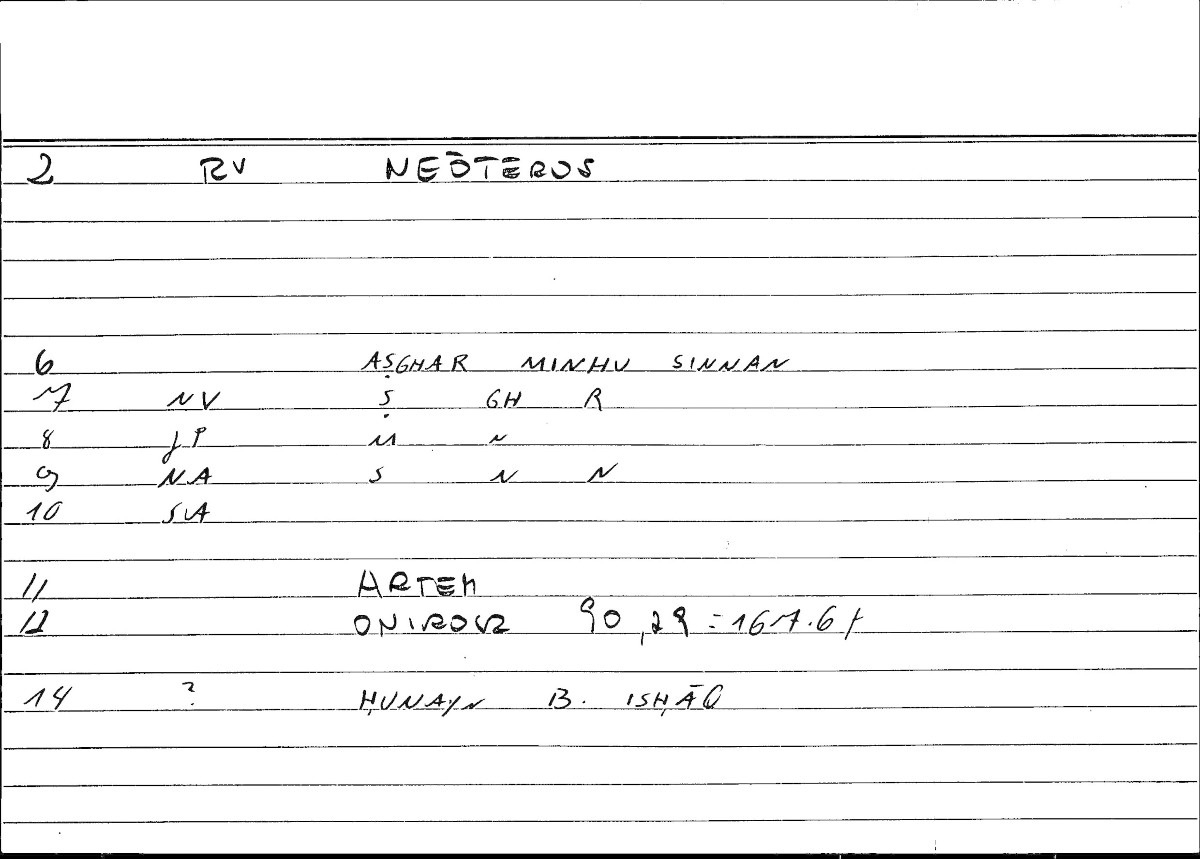 2 RV NEŌTEROS
6 AṢGHAR MINHU SINNAN
7 NV Ṣ GH R
8 JP M N
9 NA S N N
10 SA
11 ARTEM
12 ONIROCR 90,29 = 167.6f
14 ? ḤUNAYN B. ISḤĀQ